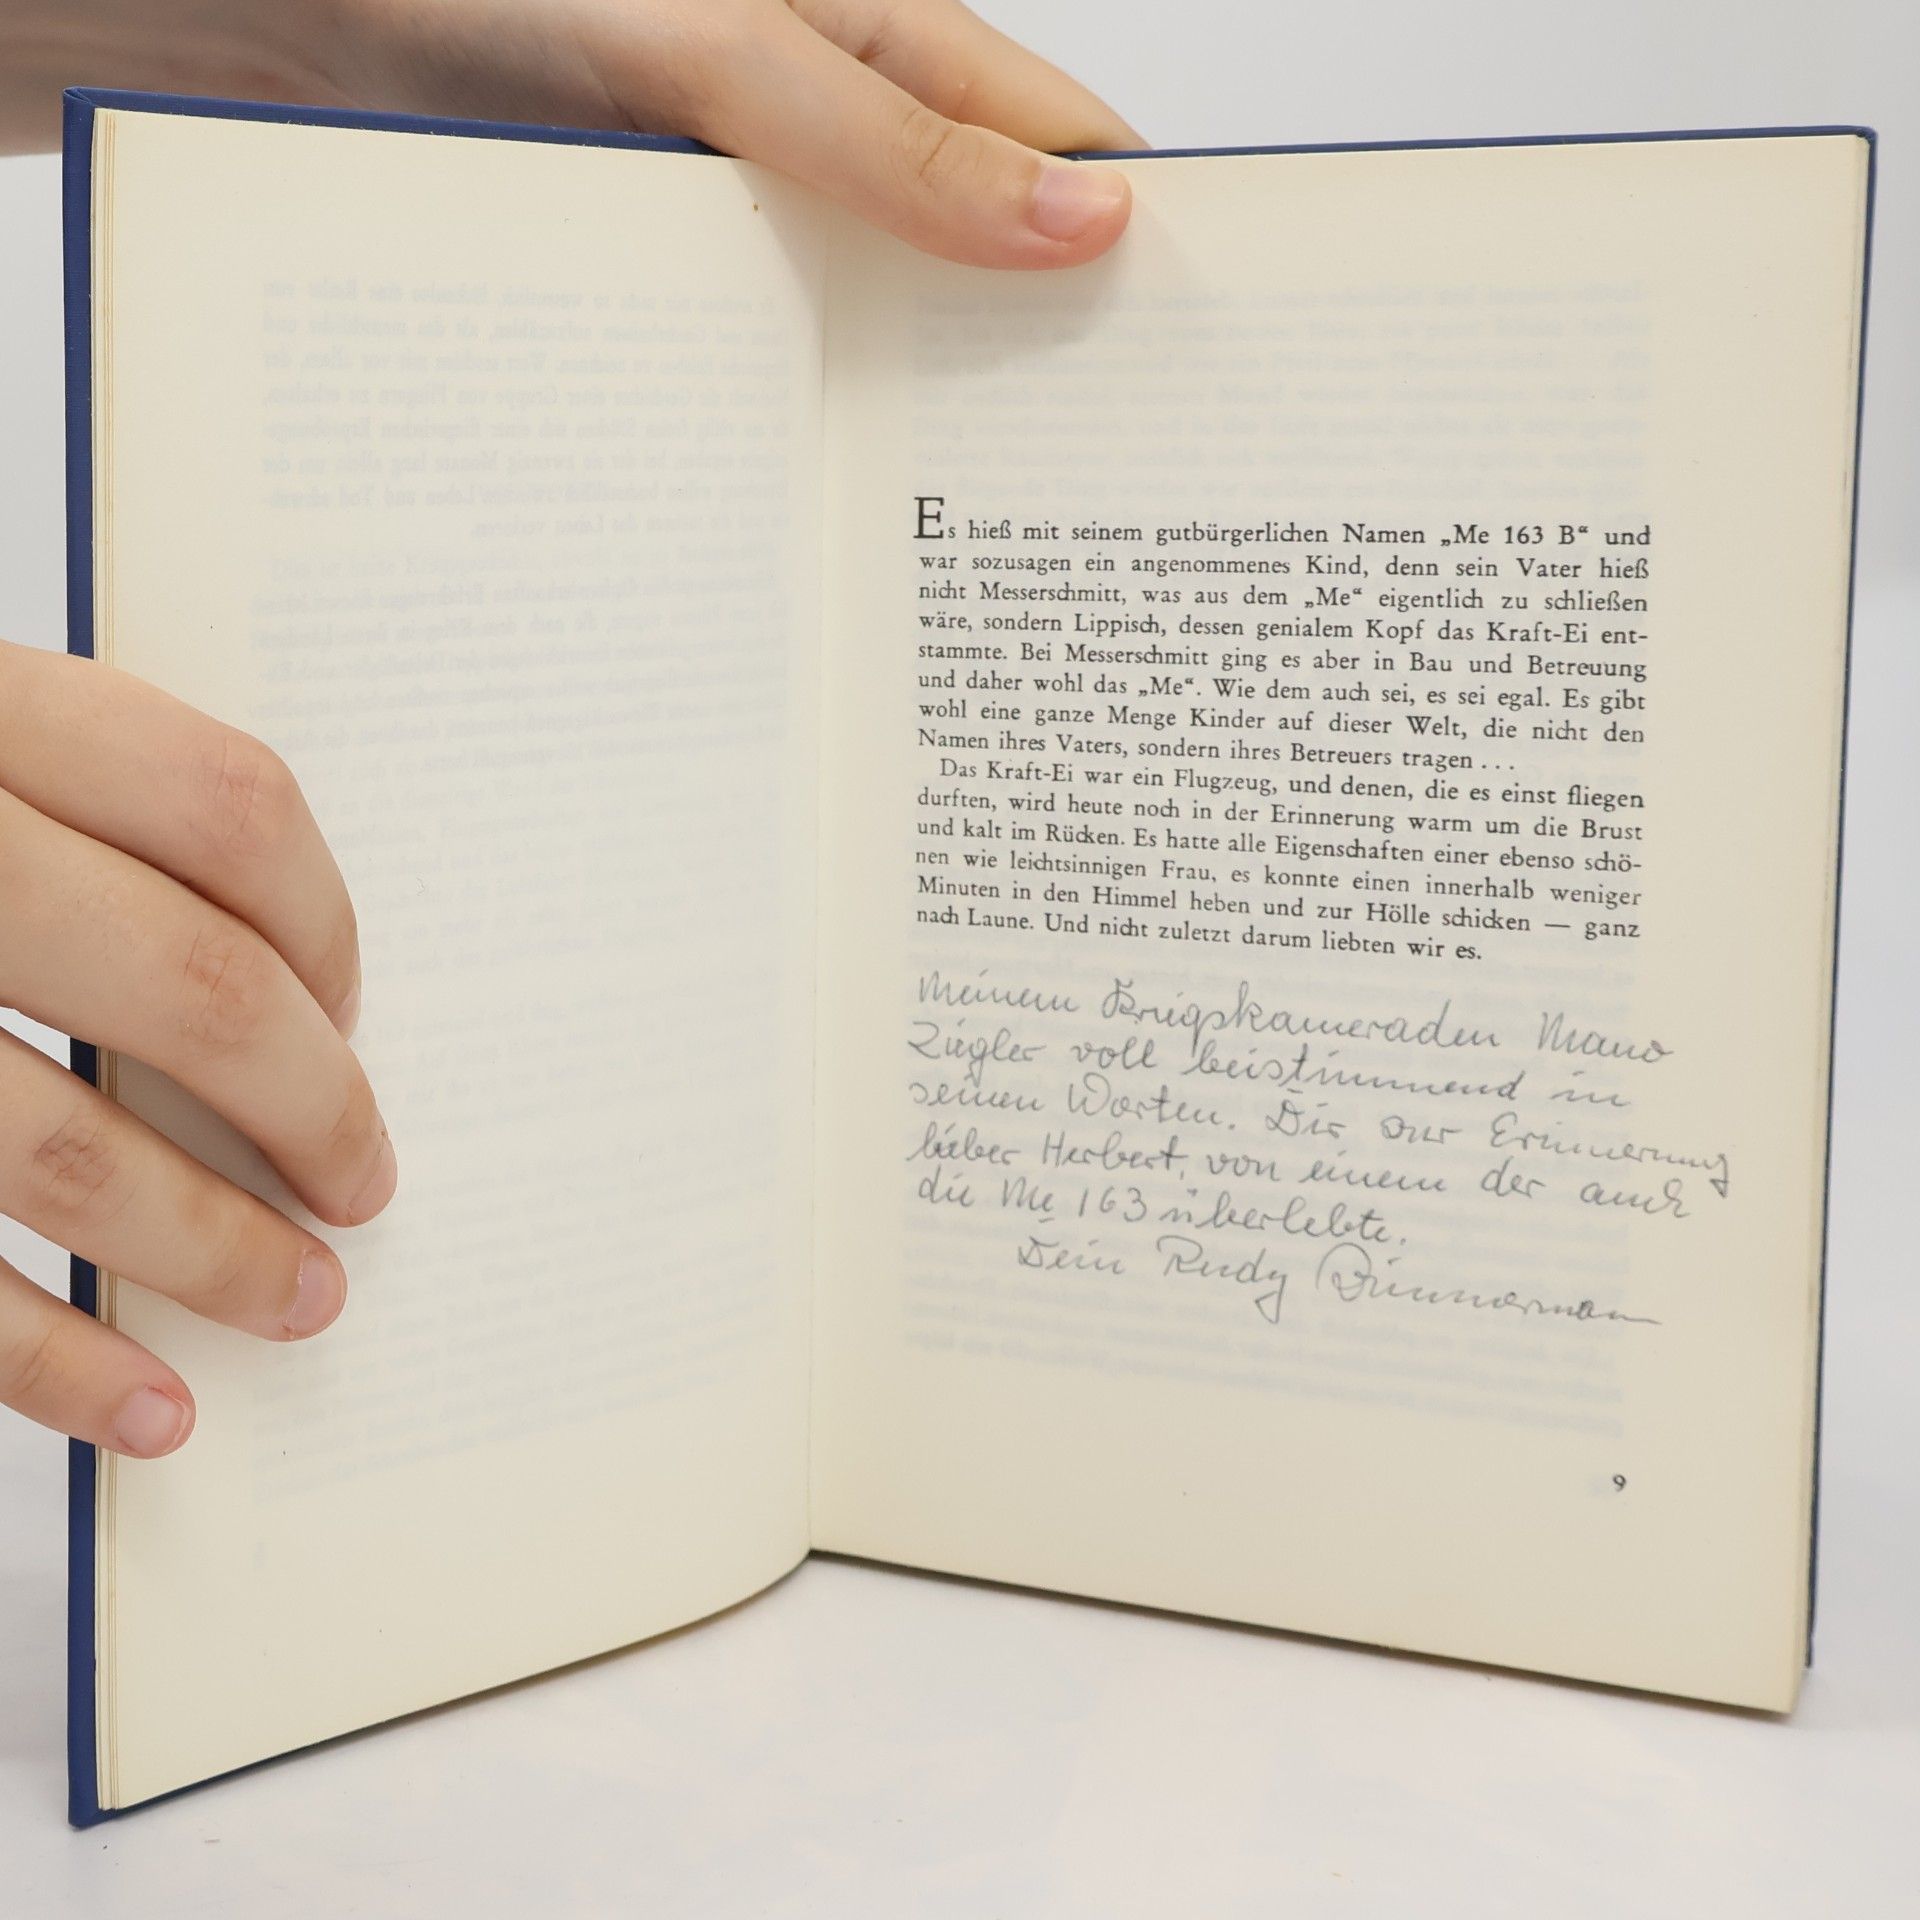 Es hieß mit seinem gutbürgerlichen Namen „Me 163 B“ und
war sozusagen ein angenommenes Kind, denn sein Vater hieß
nicht Messerschmitt, was aus dem „Me“ eigentlich zu schließen
wäre, sondern Lippisch, dessen genialem Kopf das Kraft-Ei ent-
stammte. Bei Messerschmitt ging es aber in Bau und Betreuung
und daher wohl das „Me“. Wie dem auch sei, es sei egal. Es gibt
wohl eine ganze Menge Kinder auf dieser Welt, die nicht den
Namen ihres Vaters, sondern ihres Betreuers tragen . . .
Das Kraft-Ei war ein Flugzeug, und denen, die es einst fliegen
durften, wird heute noch in der Erinnerung warm um die Brust
und kalt im Rücken. Es hatte alle Eigenschaften einer ebenso schö-
nen wie leichtsinnigen Frau, es konnte einen innerhalb weniger
Minuten in den Himmel heben und zur Hölle schicken — ganz
nach Laune. Und nicht zuletzt darum liebten wir es.
Meinem Kriegskameraden Mano
Ziegler voll beistimmend in
seinen Worten. Dir zur Erinnerung
lieber Herbert, von einem der auch
die Me 163 überlebte.
Dein Rudy Zimmermann
9